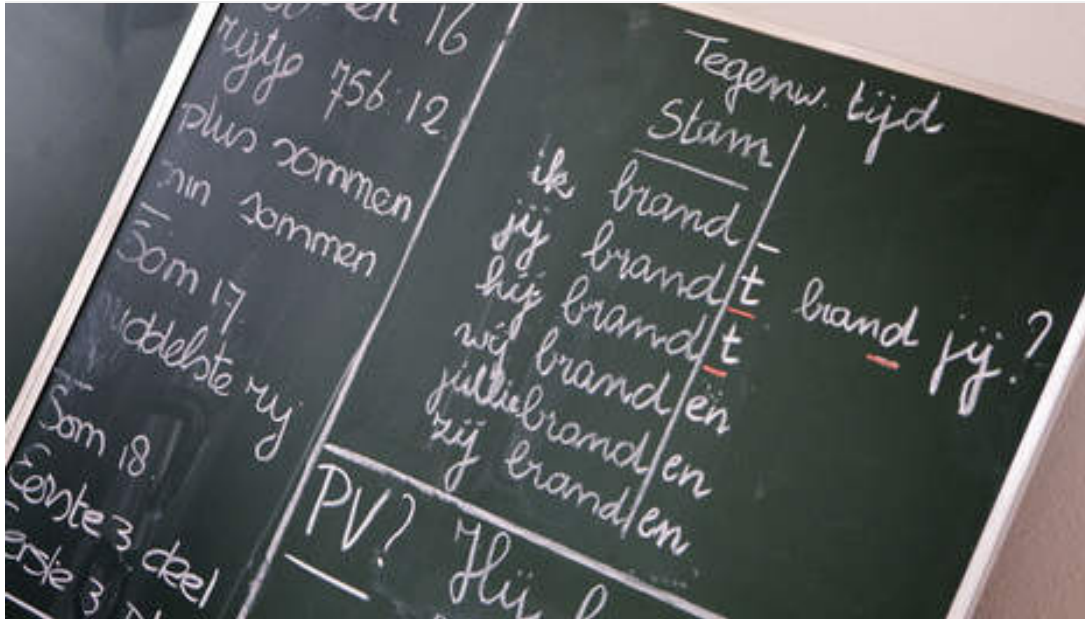 16
rijtje 756:12
plus sommen
min sommen
Som 17
middelste rij
Som 18
Eerste 3 deel
Eerste 3
Tegenw. tijd
Stam
ik brand -
jij brand/t brand jij?
hij brand/t
wij brand/en
jullie brand/en
zij brand/en
PV? Hij